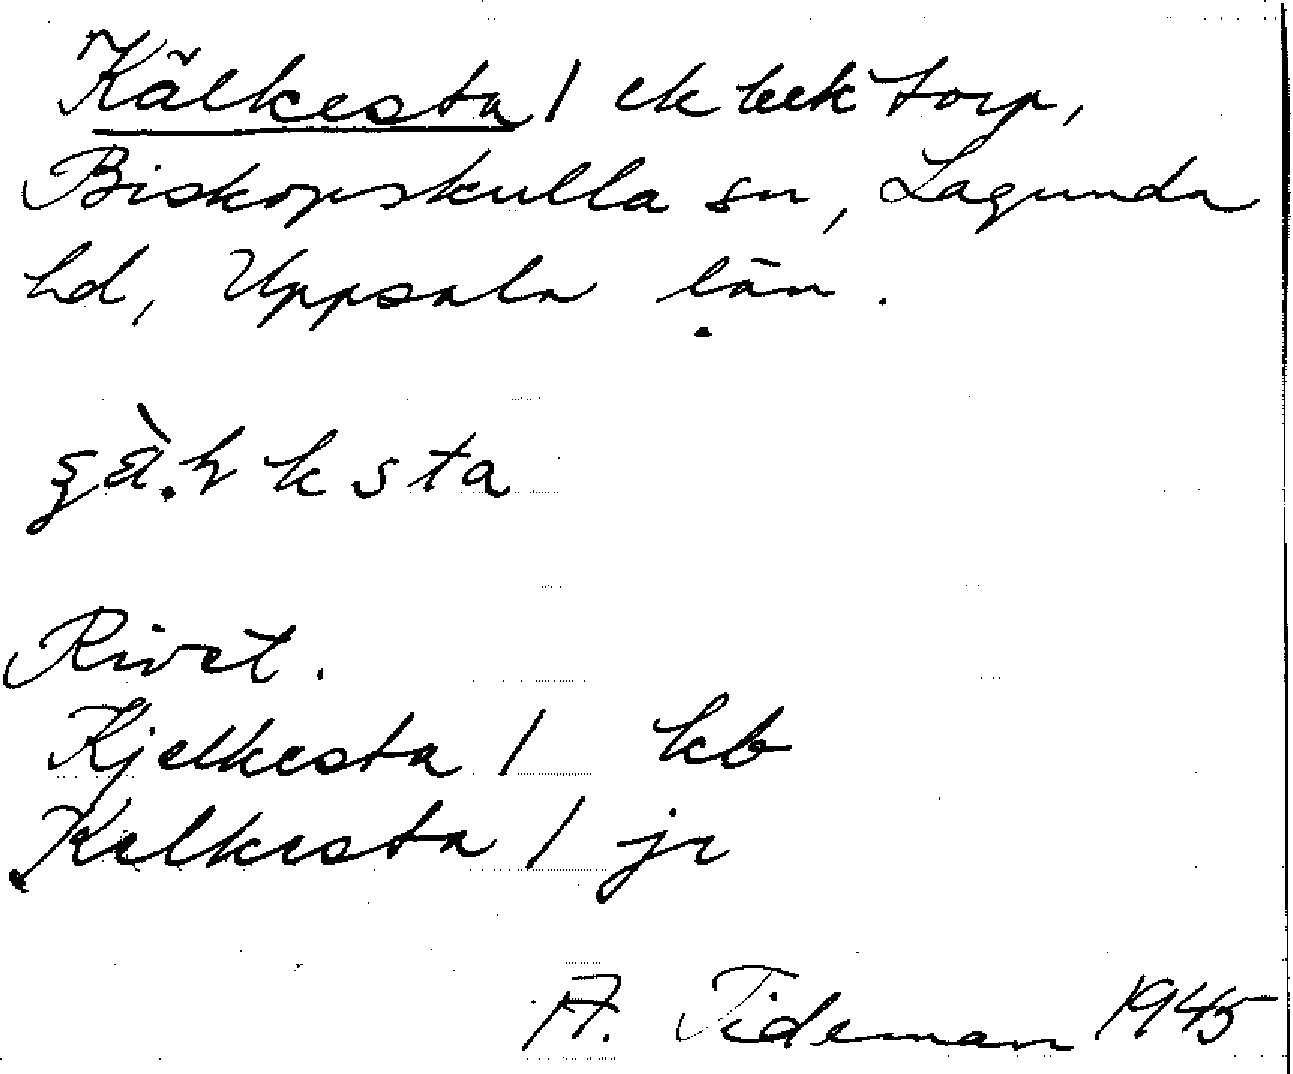 Kälkesta / ek beek torp,
Biskopskulla sn, Lagunda
hd, Uppsala län.
Rivet.
Kjelkesta / kb
Kelkesta / je
A. Tideman 1945